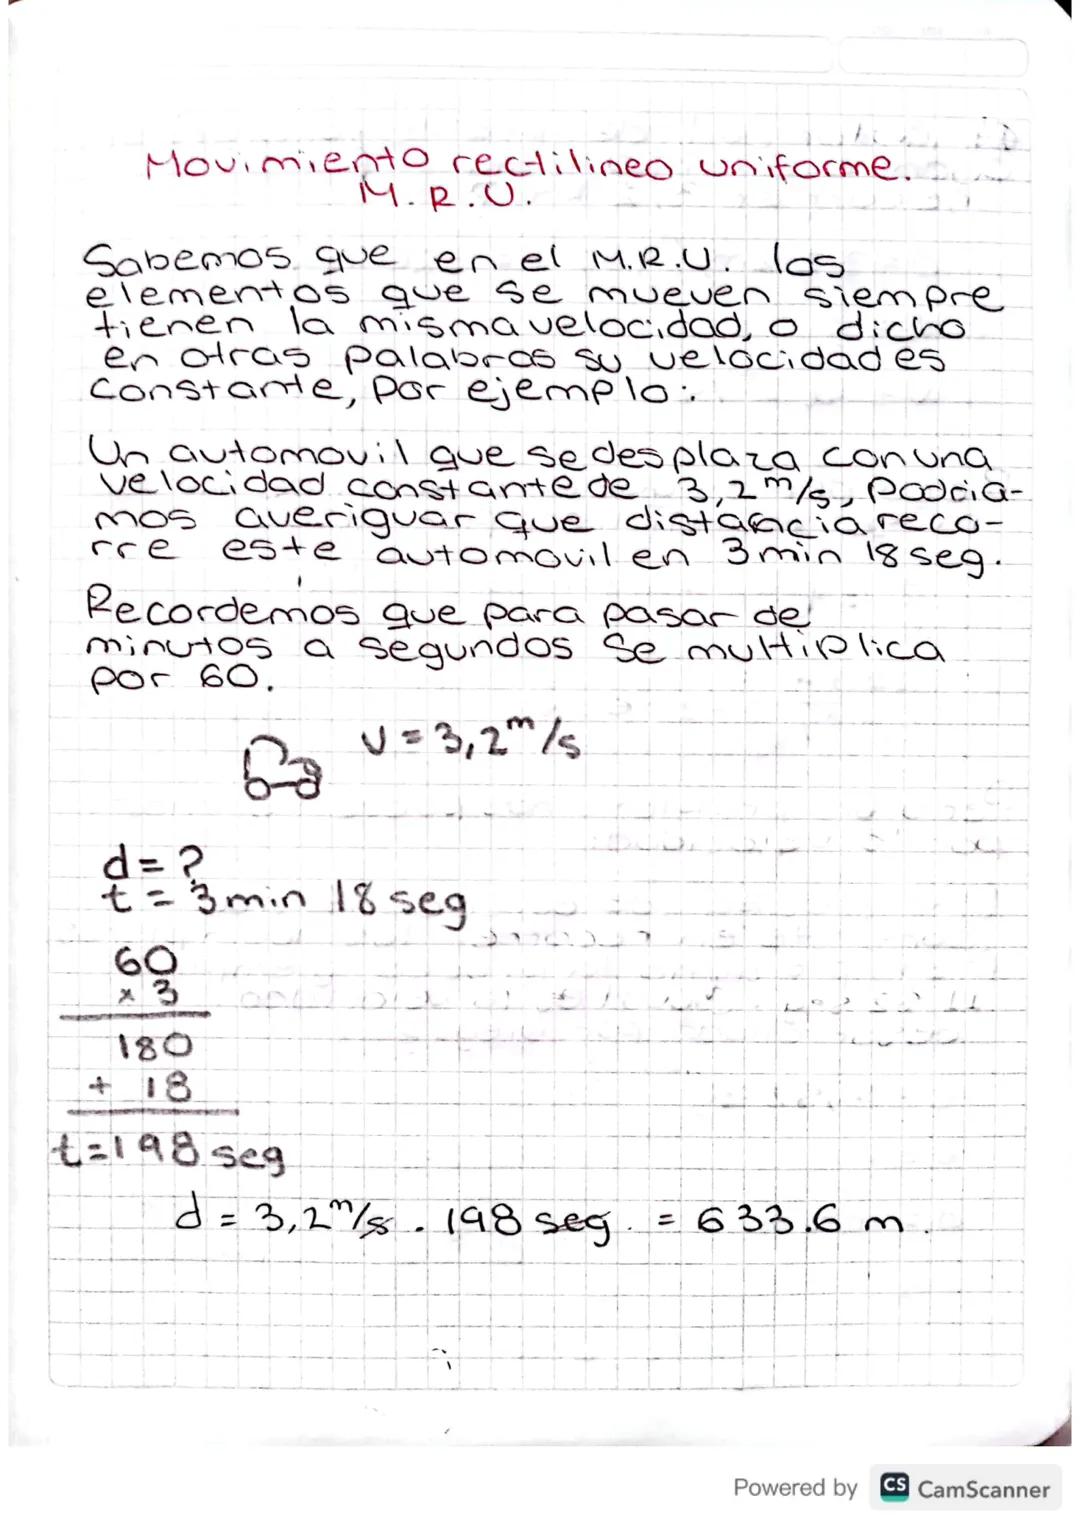 Movimiento rectilineo uniforme.
M.R.U.
Sabemos que en el M.R.U. los
elementos que se mueven siempre
tienen la misma velocidad, o dicho
en otras palabras su velocidad es
constante, por ejemplo:
Un automovil que se desplaza con una
velocidad constante de 3,2 m/s, podria-
mos averiguar que distancia reco-
rre este automovil en 3 min 18 seg.
Recordemos que para pasar de
minutos a segundos se multiplica
por 60.
V = 3,2 m/s
d = ?
t = 3 min 18 seg
60
x 3
180
+ 18
t = 198 seg
d = 3,2 m/s . 198 seg. = 633.6 m.
Powered by CS CamScanner